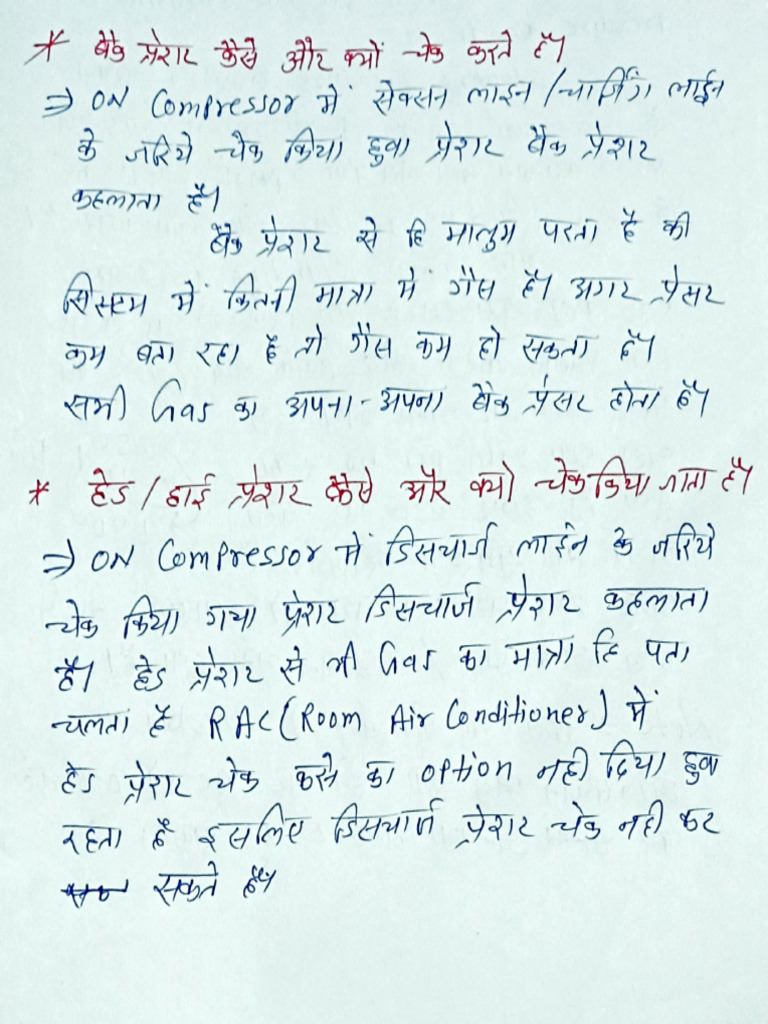 * बैक प्रेशर कैसे और क्यों चेक करते हैं।
⇒ ON Compressor में सेक्सन लाइन / चार्जिंग लाईन
के जरिये चेक किया हुवा प्रेशर बैक प्रेशर
कहलाता है।
बैक प्रेशर से हि मालुम परता है की
सिस्टम में कितनी मात्रा में गैस है। अगर प्रेसर
कम बता रहा है तो गैस कम हो सकता है।
सभी Gas का अपना-अपना बैक प्रेसर होता है।
* हेड / हाई प्रेशर कैसे और क्यो चेक किया जाता है।
⇒ ON Compressor में डिसचार्ज लाईन के जरिये
चेक किया गया प्रेशर डिसचार्ज प्रेशर कहलाता
है। हेड प्रेशर से भी Gas का मात्रा हि पता
चलता है RAC (Room Air Conditioner) में
हेड प्रेशर चेक करने का option नही दिया हुवा
रहता है इसलिए डिसचार्ज प्रेशर चेक नही कर
सकते है।